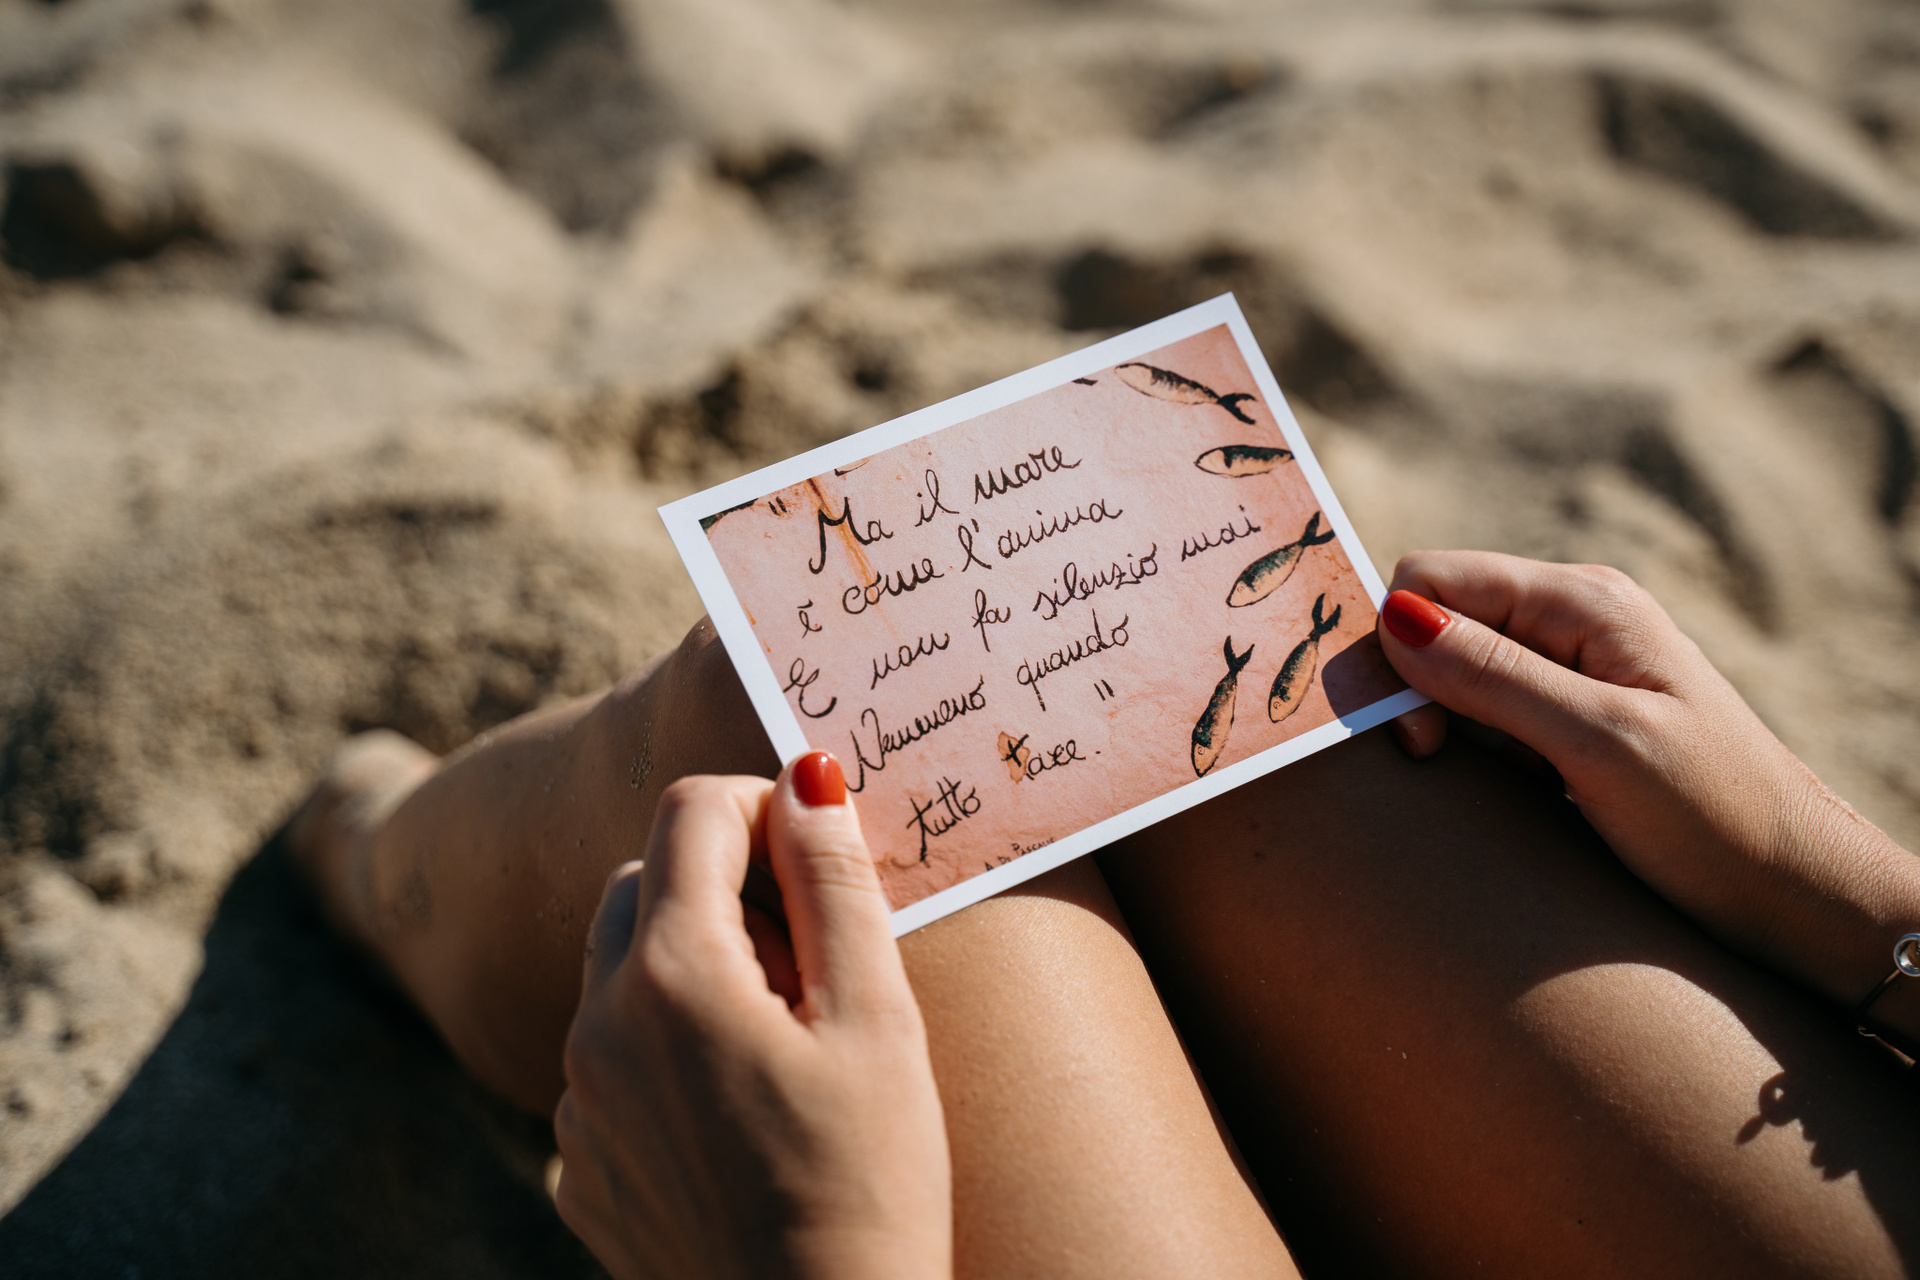 " Ma il mare
è come l'anima
E non fa silenzio mai
Nemmeno quando
tutto tace. "
A. De Pascalis